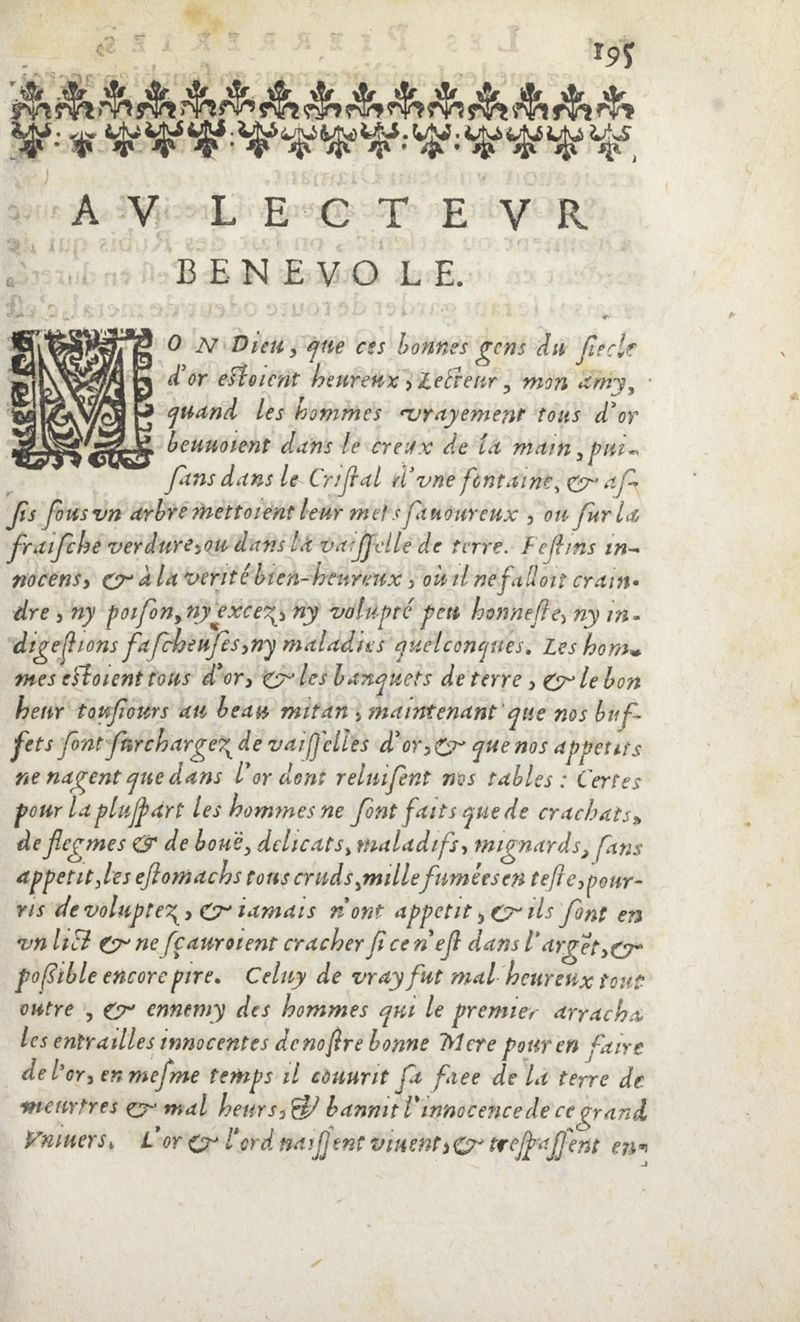 195
AV LECTEVR
BENEVOLE.
MON Dieu, que ces bonnes gens du ſiecle
d'or eſtoient heureux, Lecteur, mon amy,
quand les hommes vrayement tous d'or
beuuoient dans le creux de la main, pui-
ſans dans le Criſtal d'vne fontaine, & aſ-
ſis ſous vn arbre mettoient leur mets ſauoureux, ou ſur la
fraiſche verdure, ou dans la vaiſſelle de terre. Feſtins in-
nocens, & à la verité bien-heureux, où il ne falloit crain-
dre, ny poiſon, ny excez, ny volupté peu honneſte, ny in-
digeſtions faſcheuſes, ny maladies quelconques. Les hom-
mes eſtoient tous d'or, & les banquets de terre, & le bon
heur touſiours au beau mitan, maintenant que nos buf-
fets ſont ſurchargez de vaiſſelles d'or, & que nos appetits
ne nagent que dans l'or dont reluiſent nos tables: Certes
pour la pluſpart les hommes ne ſont faits que de crachats,
de flegmes & de bouë, delicats, maladifs, mignards, ſans
appetit, les eſtomachs tous cruds, mille fumées en teſte, pour-
ris de voluptez, & iamais n'ont appetit, & ils ſont en
vn lict & ne ſçauroient cracher ſi ce n'eſt dans l'argẽt, &
poſsible encore pire. Celuy de vray fut mal-heureux tout
outre, & ennemy des hommes qui le premier arracha
les entrailles innocentes de noſtre bonne Mere pour en faire
de l'or, en meſme temps il couurit ſa face de la terre de
meurtres & mal heurs, & bannit l'innocence de ce grand
Vniuers. L'or & l'ord naiſſent viuent, & treſpaſſent en-